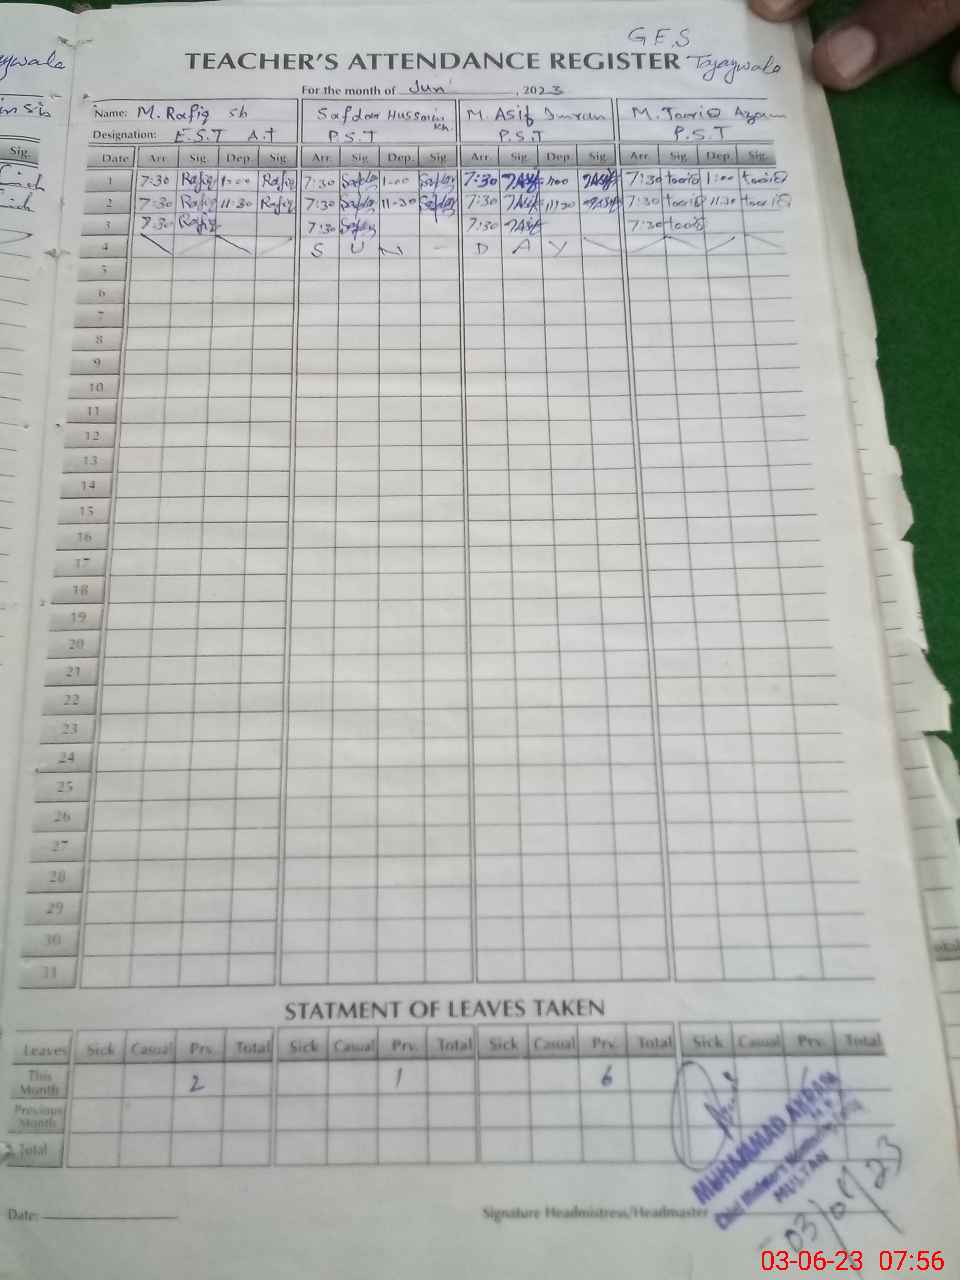 G.E.S
TEACHER'S ATTENDANCE REGISTER Tajaywala
For the month of Jun, 2023
Name: M. Rafiq sb Safdar Hussain Kh. M. Asif Imran M. Tariq Azam
Designation: E.S.T A.T P.S.T P.S.T P.S.T
Date Arr. Sig. Dep. Sig. Arr. Sig. Dep. Sig. Arr. Sig. Dep. Sig. Arr. Sig. Dep. Sig.
1 7:30 Rafiq 1:00 Rafiq 7:30 Safdar 1:00 Safdar 7:30 MAsif 1:00 MAsif 7:30 tariq 1:00 tariq
2 7:30 Rafiq 11:30 Rafiq 7:30 Safdar 11:30 Safdar 7:30 MAsif 11:30 MAsif 7:30 tariq 11:30 tariq
3 7:30 Rafiq 7:30 Safdar 7:30 MAsif 7:30 tariq
4 S U N - D A Y
5
6
7
8
9
10
11
12
13
14
15
16
17
18
19
20
21
22
23
24
25
26
27
28
29
30
31
STATMENT OF LEAVES TAKEN
Leaves Sick Casual Prv. Total Sick Casual Prv. Total Sick Casual Prv. Total Sick Casual Prv. Total
This Month 2 1 6
Previous Month
Total
MUHAMMAD
MULTAN
Date: Signature Headmistress/Headmaster
03-06-23 07:56